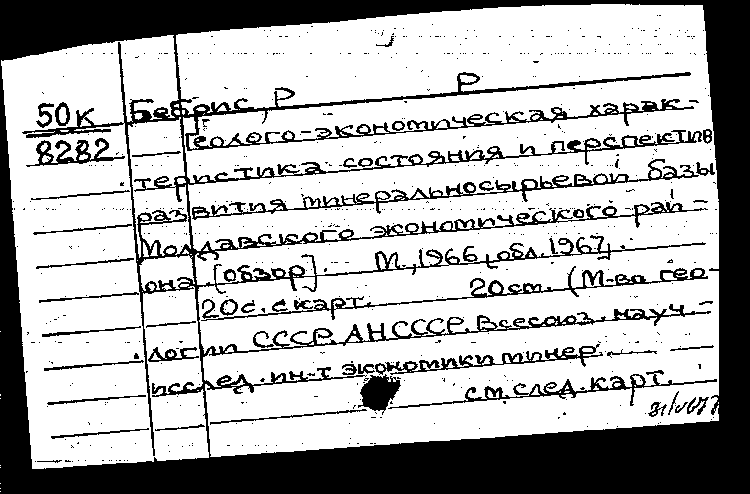 Р
50к Бебрис, Р
8282 Геолого-экономическая харак-
теристика состояния и перспектив
развития минеральносырьевой базы
Молдавского экономического рай-
она. [обзор]. М., 1966, [обл. 1967].
20с. с карт. 20см. (М-во гео-
логии СССР. АН СССР. Всесоюз. науч.-
исслед. ин-т экономики минер.
см. след. карт.